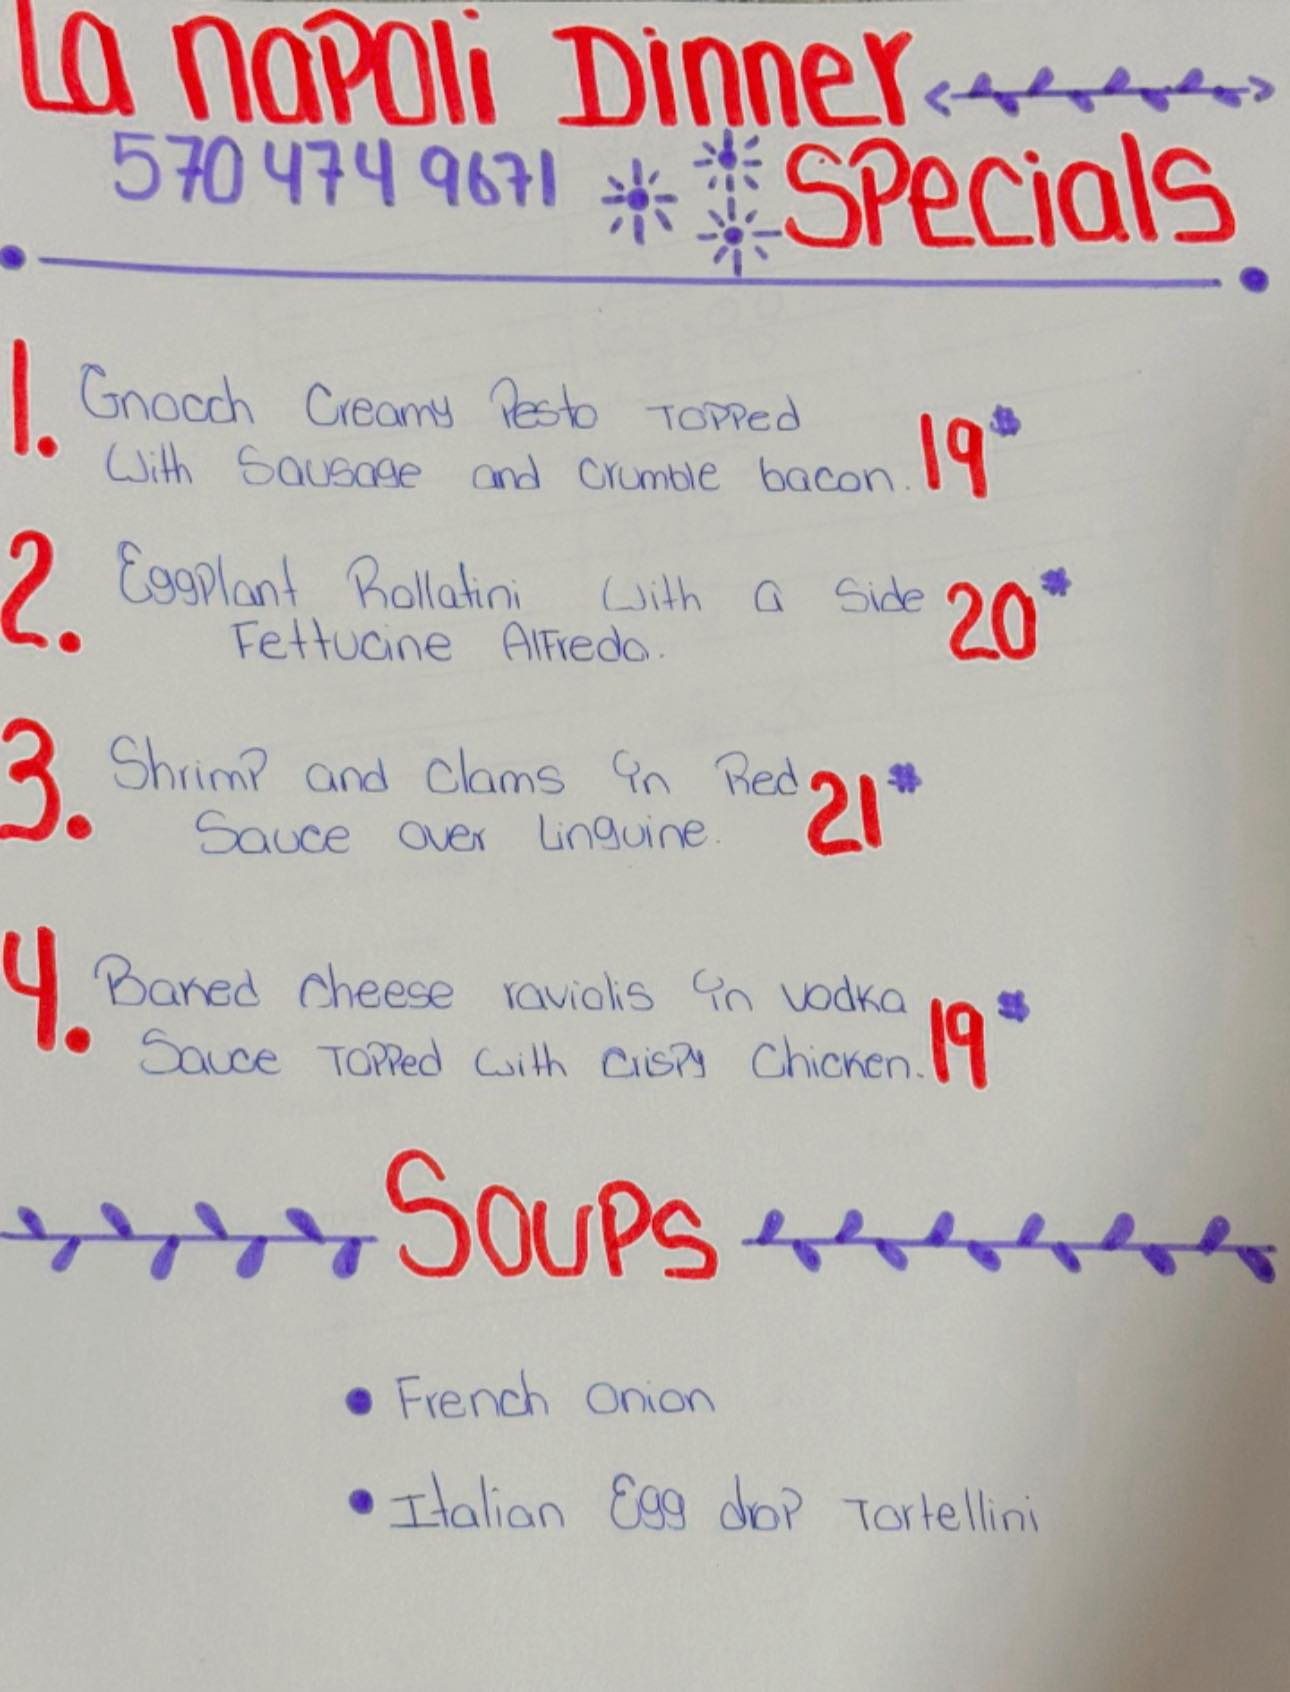 La Napoli Dinner
570 474 9671 Specials
1. Gnocch Creamy Pesto Topped
With Sausage and crumble bacon. 19$
2. Eggplant Rollatini With a Side 20$
Fettucine Alfredo.
3. Shrimp and Clams in Red 21$
Sauce over Linguine.
4. Baked cheese raviolis in vodka
Sauce Topped with crispy Chicken. 19$
Soups
• French Onion
• Italian Egg drop Tortellini